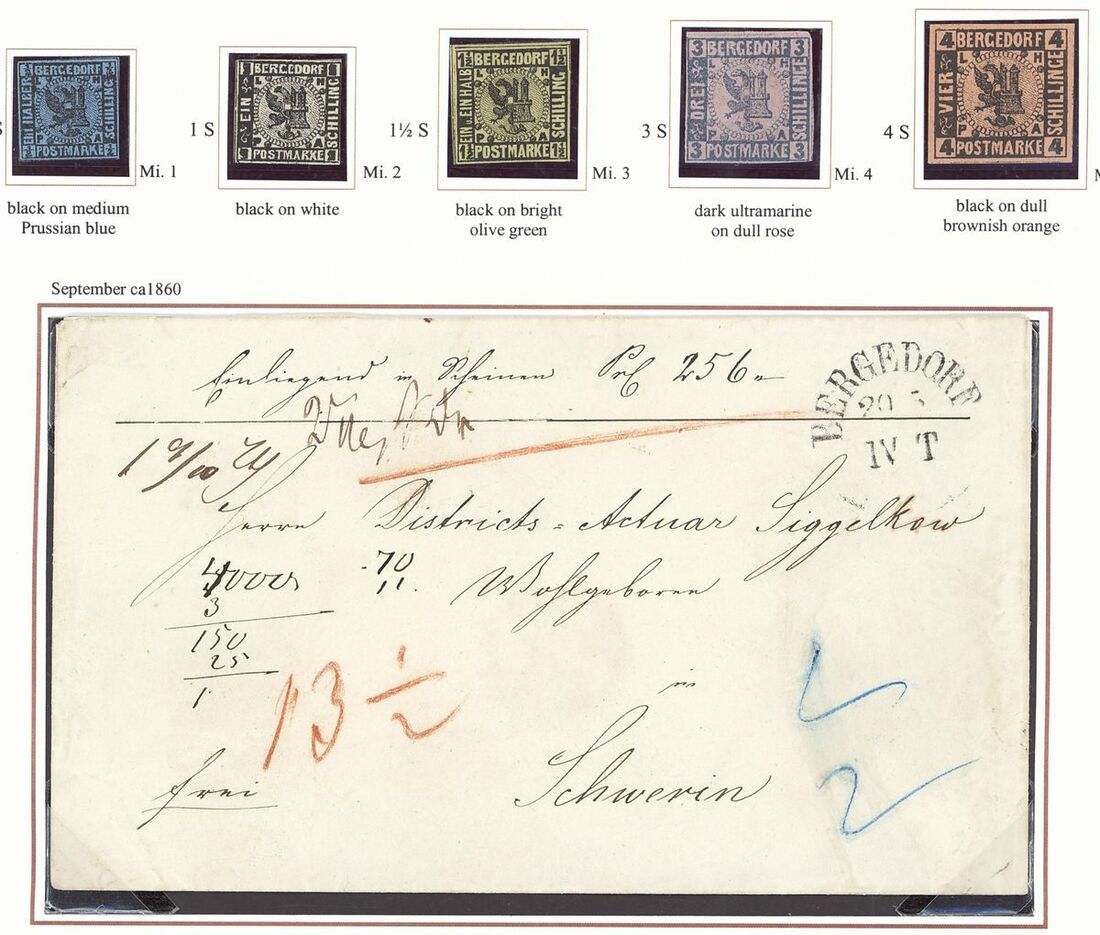 ½ BERGEDORF ½
EIN HALBER
SCHILLING
L H
P A
½ POSTMARKE ½
1 BERGEDORF 1
EIN
SCHILLING
L H
P A
1 POSTMARXE 1
1½ BERGEDORF 1½
EIN U. EINHALB
SCHILLING
L H
P A
1½ POSTMARKE 1½
3 BERGEDORF 3
DREI
SCHILLINGE
L H
P A
3 POSTMARKE 3
4 BERGEDORF 4
VIER
SCHILLINGE
L H
P A
4 POSTMARKE 4
S
1 S
1½ S
3 S
4 S
Mi. 1
Mi. 2
Mi. 3
Mi. 4
M
black on medium
Prussian blue
black on white
black on bright
olive green
dark ultramarine
on dull rose
black on dull
brownish orange
September ca1860
Einliegend in Scheinen 256
BERGEDORF
20
IV T
Herrn Districts = Actuar Siggelkow
70
11.
Wohlgeboren
3
150
25
1
13 ½
in
frei
Schwerin
2